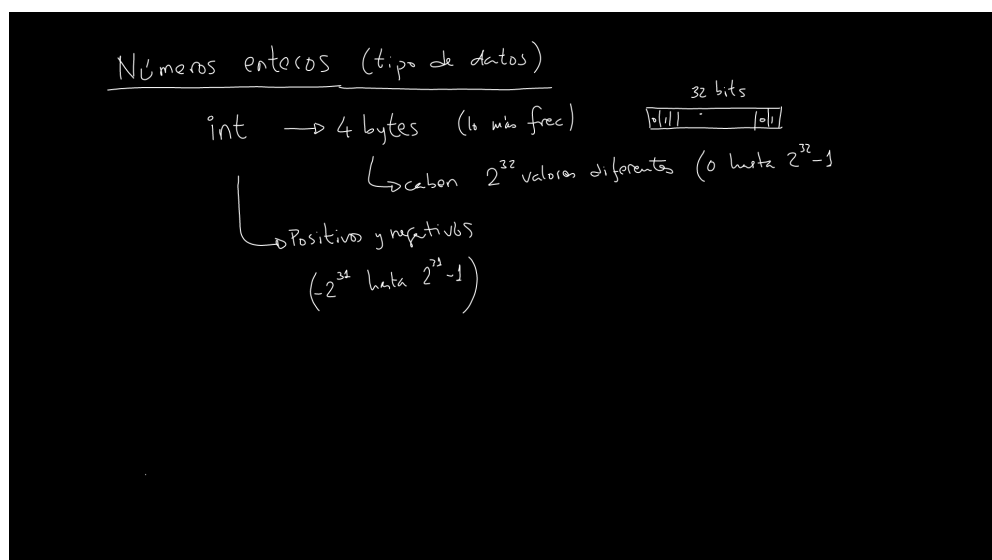 Números enteros (tipo de datos)
32 bits
int → 4 bytes (lo más frec)
0 1 1 0 1
caben 2^32 valores diferentes (0 hasta 2^32-1
Positivos y negativos
(-2^31 hasta 2^31-1)